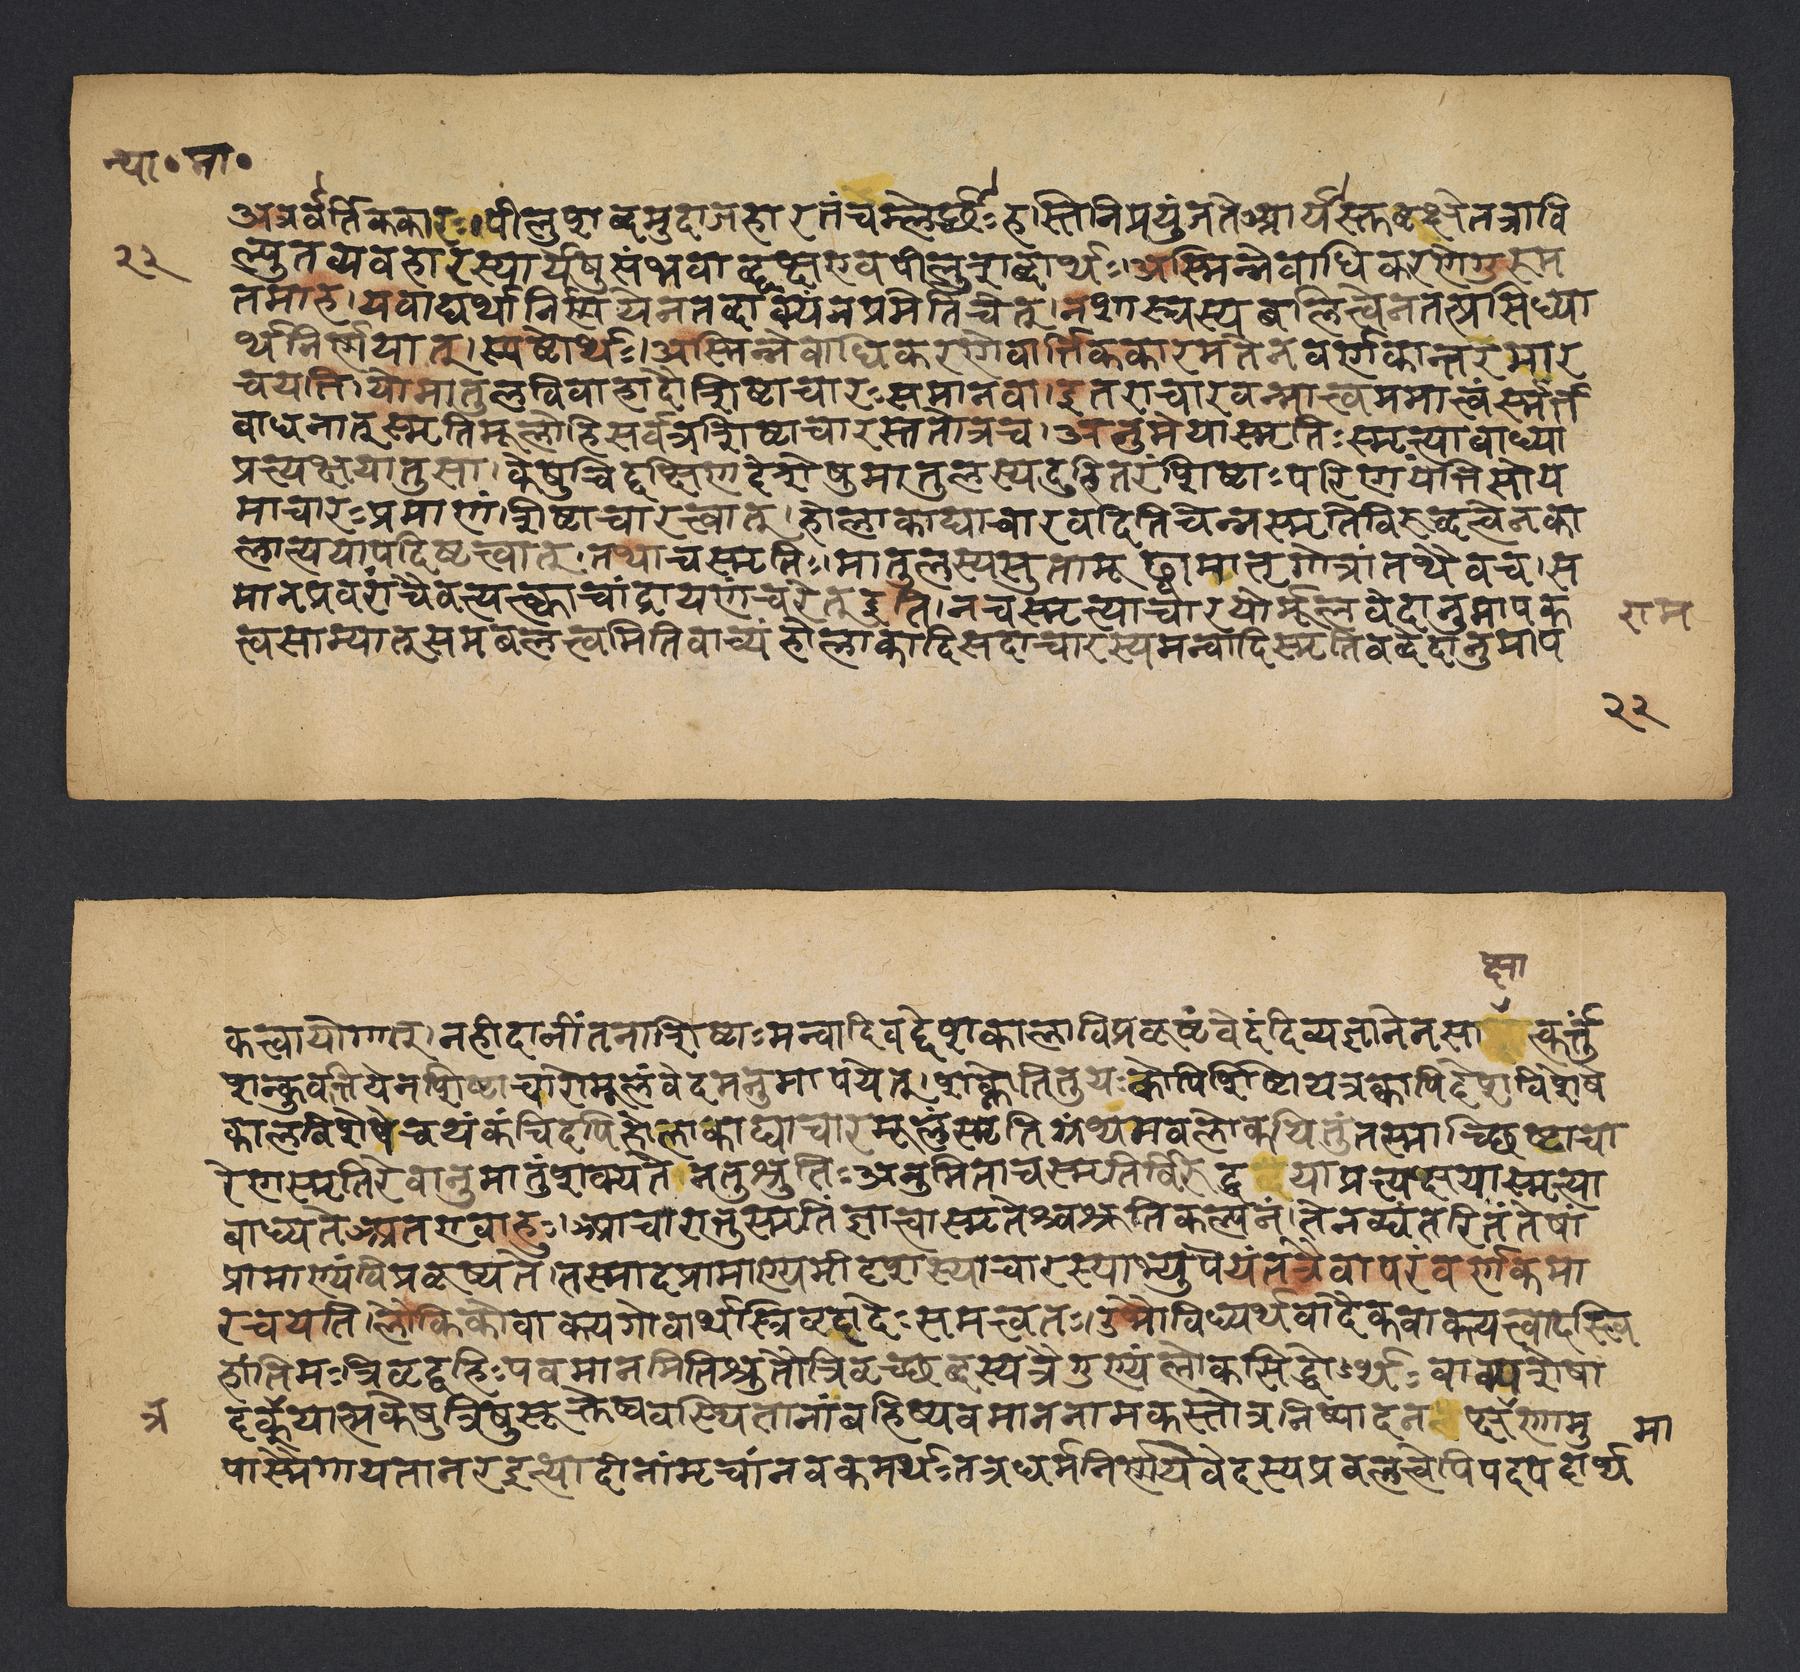 न्या॰ मा॰
अत्रर्वर्तिककारः॥पीलुशब्दमुदाजहारतंचम्लेर्छाः हस्तिनिप्रयुंजतेआर्यास्तवृक्षेतत्रावि
२२
ल्पुतव्यवहारस्यार्येषुसंभवाद्वृक्षएवपीलुशब्दार्थः।अस्मिन्नेवाधिकरणेगुरुम
तमाह।यवाद्यर्थानिर्णयेनतद्वाक्यंनप्रमेतिचेत्।नशास्त्रस्यबलित्वेनतत्प्रसिध्या
र्थनिर्णयात्।स्पष्टोर्थः।अस्मिन्नेवाधिकरणेवार्त्तिककारमतेनवर्णकान्तरमार
चयति।योमातुलविवाहादौशिष्टाचारःसमानवा।इतराचारवन्मात्वममात्वंस्मार्त
बाधनात्स्मृतिमूलोहिसर्वत्रशिष्टाचारस्ततोत्रच।अनुमेयास्मृतिःस्मृत्याबाध्या
प्रत्यक्षयातुसा।केषुचिद्दक्षिणदेशेषुमातुलस्यदुहितरंशिष्टाःपरिणयंतिसोय
माचारःप्रमाणं।शिष्टाचारत्वात्।होलाकाद्याचारवदितिचेन्नस्मृतिविरुद्धत्वेनका
लात्ययापदिष्टत्वात्।तथाचस्मृतिः।मातुलस्यसुतामूढ्वामातृगोत्रांतथैवच।स
मानप्रवरांचैवत्यक्त्वाचांद्रायणंचरेत्इति।नचस्मृत्याचारयोर्मूलवेदानुमापक
राम
त्वसाम्यात्समबलत्वमितिवाच्यंहोलाकादिसदाचारस्यमन्वादिस्मृतिवद्वेदानुमाप
२२
क्षा
कत्वायोगात्।नहीदानींतनाशिष्टाःमन्वादिवद्देशकालाविप्रकृष्टंवेदंदिव्यज्ञानेनसात्कर्त्तुं
शक्नुवंतियेनशिष्टाचारोमूलंवेदमनुमापयेत्।शक्नोतितुयःकोपिशिष्टोयत्रक्वापिदेशविशेष
कालविशेषेचयंकंचिदपिहोलाकाद्याचारमूलंस्मृतिग्रंथमवलोकयितुंतस्माच्छिष्टाचा
रेणस्मृतिरेवानुमातुंशक्यतेनतुश्रुतिःअनुमिताचस्मृतिर्विरुद्धयाप्रत्यक्षयास्मृत्या
बाध्यतेअतएवाहुः।आचारात्तुस्मृतिंज्ञात्वास्मृतेश्चश्रुतिकल्पनं।तेनद्व्यंतरितंतेषां
प्रामाण्यंविप्रकृष्यते।तस्मादप्रामाण्यमीदृशस्याचारस्याभ्युपेयंतत्रैवापरंवर्णकमा
रचयति।लौकिकोवाक्यगोवार्थस्त्रिवृदादेःसमत्वतः।उभौविध्यर्थवादैकवाक्यत्वादस्त्वि
हांतिमः।त्रिवृद्बहिःपवमानमितिश्रुतौत्रिवृच्छब्दस्यत्रैगुण्यंलोकसिद्धोऽर्थःवाक्यशेषा
त्र
दृक्त्रयात्मकेषुत्रिषुसूक्तेष्ववस्थितानांबहिष्पवमाननामकस्तोत्रनिष्पादनक्षमाणामु
मा
पास्मैगायतानरइत्यादीनांमृचांनवकमर्थःतत्रधर्मनिर्णयेवेदस्यप्रबलत्वेपिपदपदार्थ